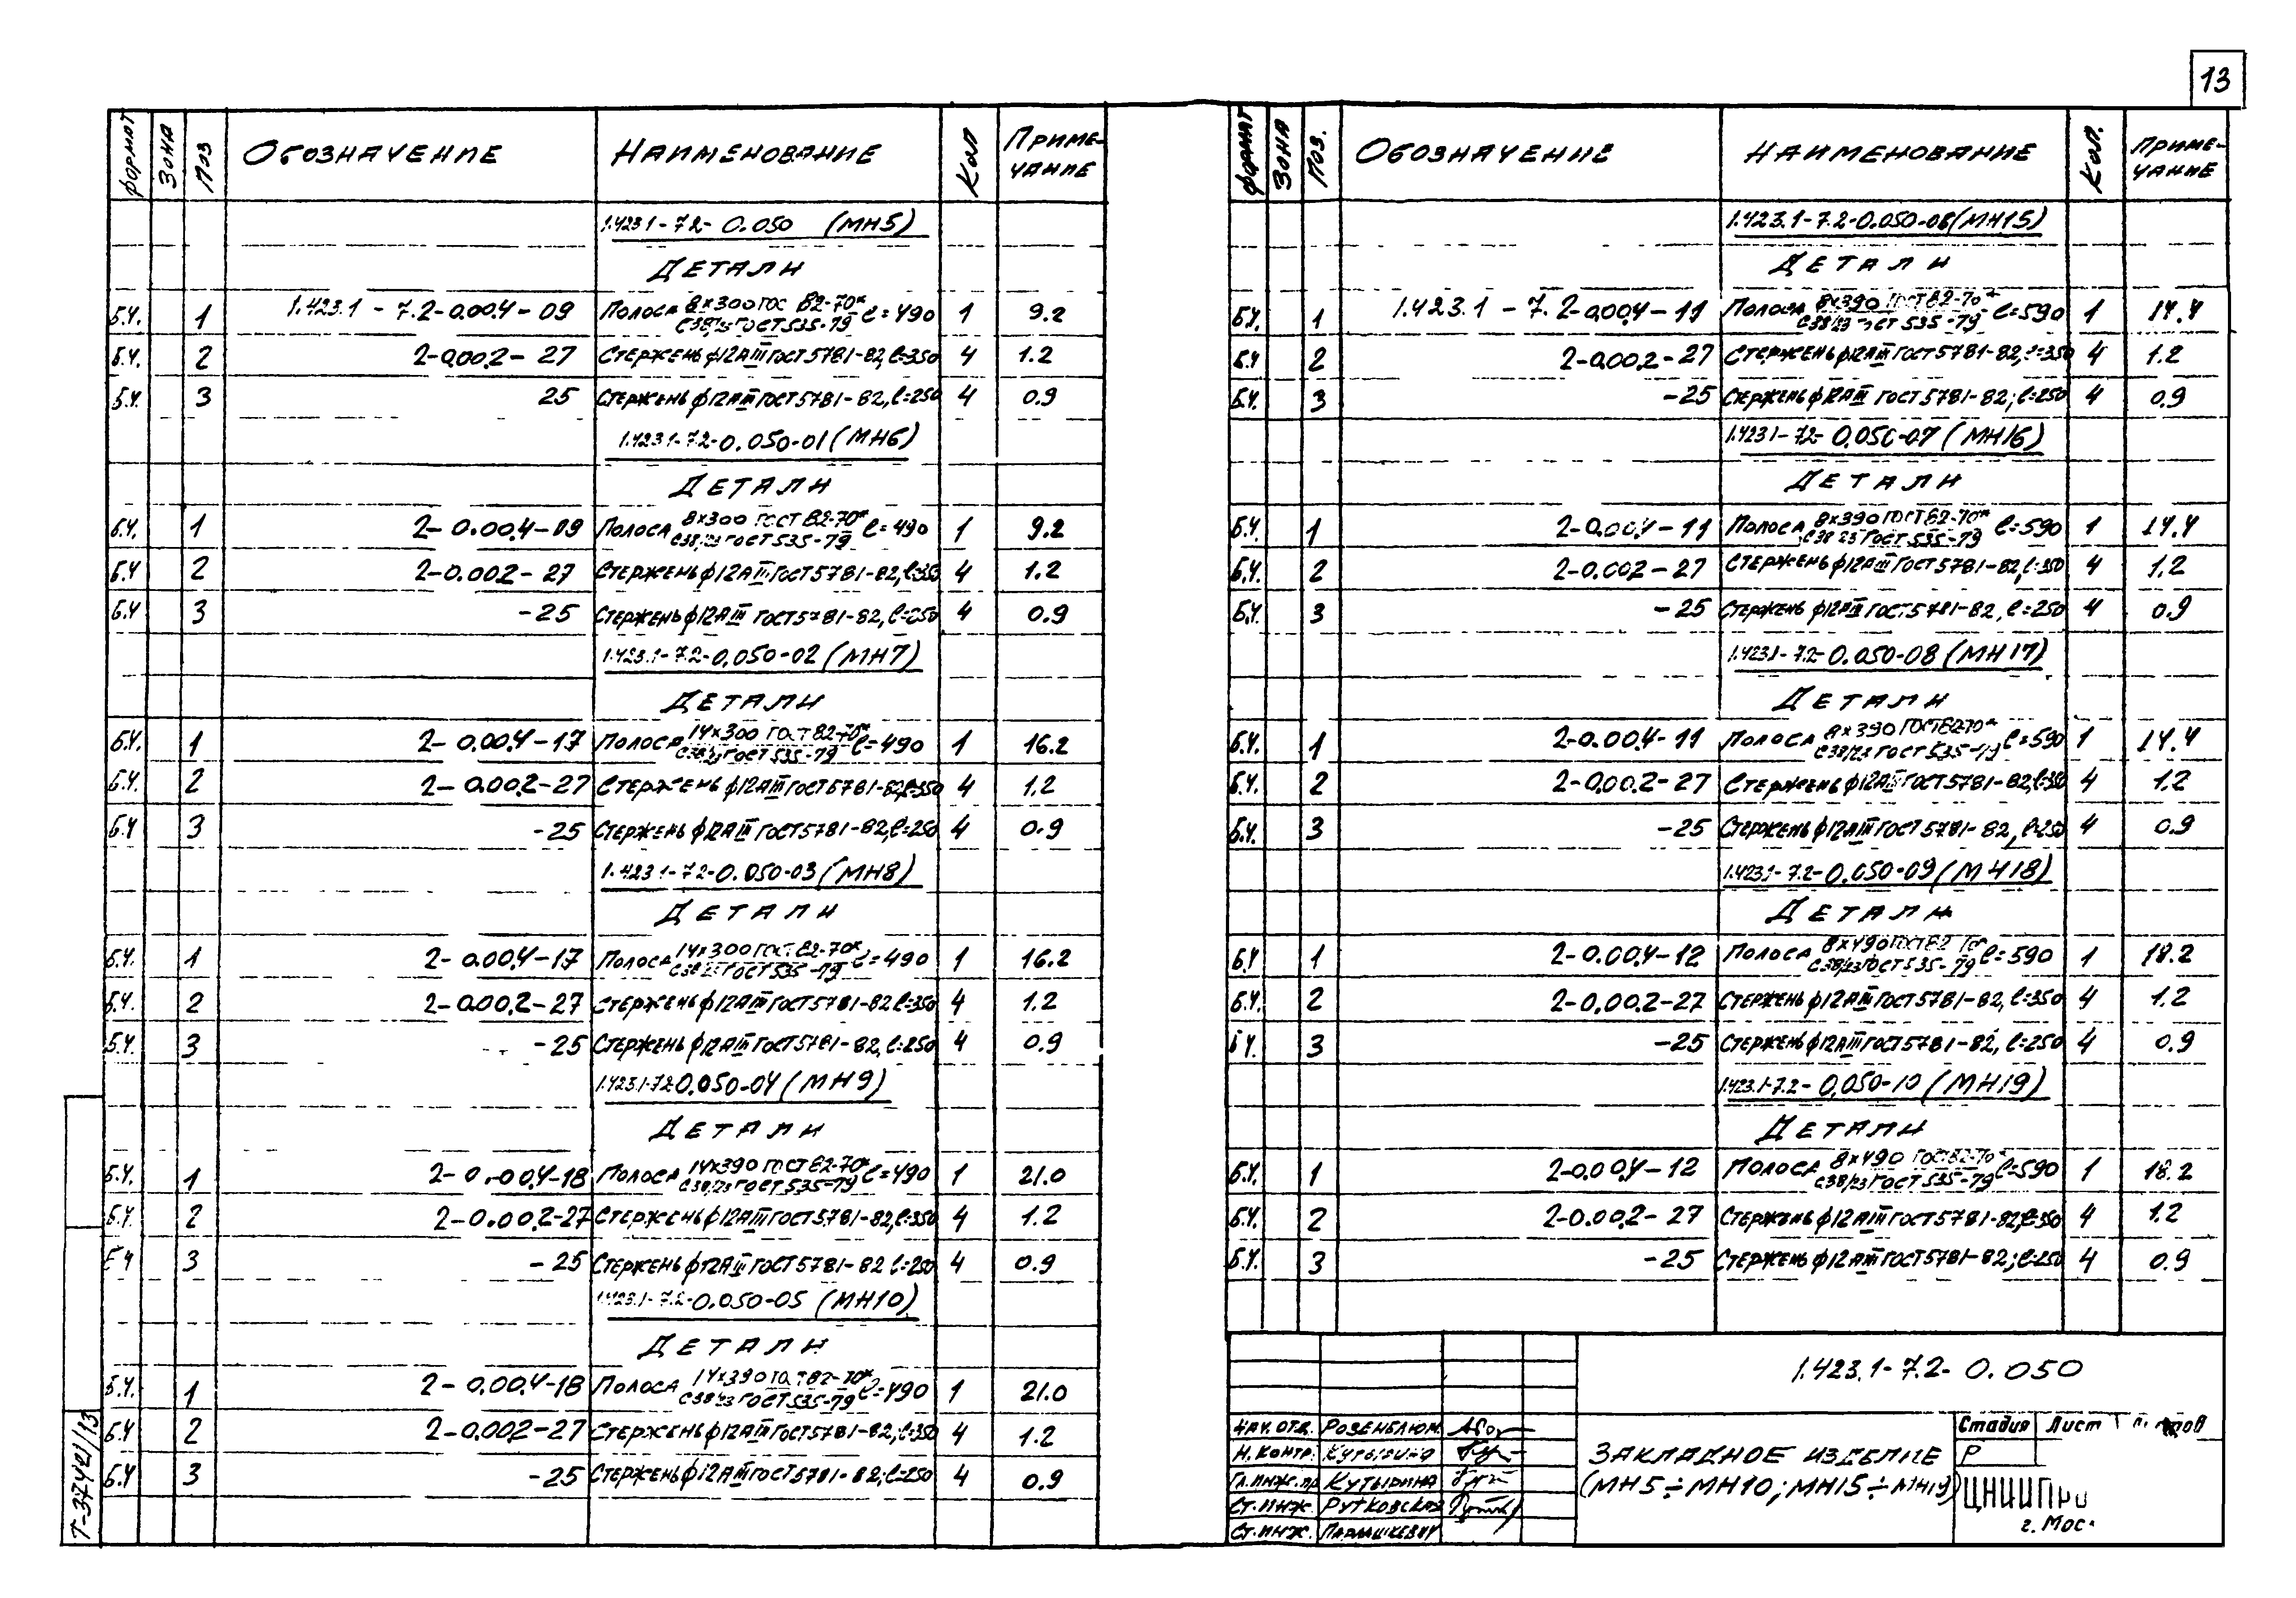 13
ФОРМАТ ЗОНА ПОЗ ОБОЗНАЧЕНИЕ НАИМЕНОВАНИЕ КОЛ ПРИМЕ-ЧАНИЕ
1.423.1-7.2-0.050 (МН5)
ДЕТАЛИ
Б.Ч. 1 1.423.1-7.2-0.00.4-09 ПОЛОСА 8×300 ГОС 82-70* / С38/23 ГОСТ 535-79 ℓ=490 1 9.2
Б.Ч. 2 2-0.00.2-27 СТЕРЖЕНЬ ϕ12АIII ГОСТ 5781-82, ℓ=350 4 1.2
Б.Ч. 3 25 СТЕРЖЕНЬ ϕ12АIII ГОСТ 5781-82, ℓ=250 4 0.9
1.423.1-7.2-0.050-01 (МН6)
ДЕТАЛИ
Б.Ч. 1 2-0.00.4-09 ПОЛОСА 8×300 ГОСТ 82-70* / С38/23 ГОСТ 535-79 ℓ=490 1 9.2
Б.Ч 2 2-0.00.2-27 СТЕРЖЕНЬ ϕ12АIII ГОСТ 5781-82, ℓ=350 4 1.2
Б.Ч 3 -25 СТЕРЖЕНЬ ϕ12АIII ГОСТ 5781-82, ℓ=250 4 0.9
1.423.1-7.2-0.050-02 (МН7)
ДЕТАЛИ
Б.Ч. 1 2-0.00.4-17 ПОЛОСА 14×300 ГОСТ 82-70* / С38/23 ГОСТ 535-79 ℓ=490 1 16.2
Б.Ч. 2 2-0.00.2-27 СТЕРЖЕНЬ ϕ12АIII ГОСТ 5781-82, ℓ=350 4 1.2
Б.Ч 3 -25 СТЕРЖЕНЬ ϕ12АIII ГОСТ 5781-82, ℓ=250 4 0.9
1.423.1-7.2-0.050-03 (МН8)
ДЕТАЛИ
Б.Ч. 1 2-0.00.4-17 ПОЛОСА 14×300 ГОСТ 82-70* / С38/23 ГОСТ 535-79 ℓ=490 1 16.2
Б.Ч. 2 2-0.00.2-27 СТЕРЖЕНЬ ϕ12АIII ГОСТ 5781-82 ℓ=350 4 1.2
Б.Ч. 3 -25 СТЕРЖЕНЬ ϕ12АIII ГОСТ 5781-82, ℓ=250 4 0.9
1.423.1-7.2 0.050-04 (МН9)
ДЕТАЛИ
Б.Ч. 1 2-0.00.4-18 ПОЛОСА 14×390 ГОСТ 82-70* / С38/23 ГОСТ 535-79 ℓ=490 1 21.0
Б.Ч. 2 2-0.00.2-27 СТЕРЖЕНЬ ϕ12АIII ГОСТ 5781-82, ℓ=350 4 1.2
Б Ч 3 -25 СТЕРЖЕНЬ ϕ12АIII ГОСТ 5781-82 ℓ=250 4 0.9
1.423.1-7.2-0.050-05 (МН10)
ДЕТАЛИ
Б.Ч. 1 2-0.00.4-18 ПОЛОСА 14×390 ГОСТ 82-70* / С38/23 ГОСТ 535-79 ℓ=490 1 21.0
Б.Ч 2 2-0.00.2-27 СТЕРЖЕНЬ ϕ12АIII ГОСТ 5781-82, ℓ=350 4 1.2
Б.Ч 3 -25 СТЕРЖЕНЬ ϕ12АIII ГОСТ 5781-82; ℓ=250 4 0.9
Т-37421/13
ФОРМАТ ЗОНА ПОЗ. ОБОЗНАЧЕНИЕ НАИМЕНОВАНИЕ КОЛ. ПРИМЕ-ЧАНИЕ
1.423.1-7.2-0.050-06 (МН15)
ДЕТАЛИ
Б.Ч. 1 1.423.1-7.2-0.00.4-11 ПОЛОСА 8×390 ГОСТ 82-70* / С38/23 ГОСТ 535-79 ℓ=590 1 14.4
Б.Ч 2 2-0.00.2-27 СТЕРЖЕНЬ ϕ12АIII ГОСТ 5781-82, ℓ=350 4 1.2
Б.Ч. 3 -25 СТЕРЖЕНЬ ϕ12АIII ГОСТ 5781-82; ℓ=250 4 0.9
1.423.1-7.2-0.050-07 (МН16)
ДЕТАЛИ
Б.Ч 1 2-0.00.4-11 ПОЛОСА 8×390 ГОСТ 82-70* / С38 23 ГОСТ 535-79 ℓ=590 1 14.4
Б.Ч. 2 2-0.00.2-27 СТЕРЖЕНЬ ϕ12АIII ГОСТ 5781-82, ℓ=350 4 1.2
Б.Ч. 3 -25 СТЕРЖЕНЬ ϕ12АIII ГОСТ 5781-82, ℓ=250 4 0.9
1.423.1-7.2-0.050-08 (МН17)
ДЕТАЛИ
Б.Ч. 1 2-0.00.4-11 ПОЛОСА 8×390 ГОСТ 82-70* / С38/23 ГОСТ 535-79 ℓ=590 1 14.4
Б.Ч. 2 2-0.00.2-27 СТЕРЖЕНЬ ϕ12АIII ГОСТ 5781-82, ℓ=350 4 1.2
Б.Ч. 3 -25 СТЕРЖЕНЬ ϕ12АIII ГОСТ 5781-82, ℓ=250 4 0.9
1.423.1-7.2-0.050-09 (МН18)
ДЕТАЛИ
Б.Ч 1 2-0.00.4-12 ПОЛОСА 8×490 ГОСТ 82 70* / С38/23 ГОСТ 535-79 ℓ=590 1 18.2
Б.Ч. 2 2-0.00.2-27 СТЕРЖЕНЬ ϕ12АIII ГОСТ 5781-82, ℓ=350 4 1.2
Б Ч. 3 -25 СТЕРЖЕНЬ ϕ12АIII ГОСТ 5781-82, ℓ=250 4 0.9
1.423.1-7.2-0.050-10 (МН19)
ДЕТАЛИ
Б.Ч. 1 2-0.00.4-12 ПОЛОСА 8×490 ГОСТ 82-70* / С38/23 ГОСТ 535-79 ℓ=590 1 18.2
Б.Ч. 2 2-0.00.2-27 СТЕРЖЕНЬ ϕ12АIII ГОСТ 5781-82, ℓ=350 4 1.2
Б.Ч. 3 -25 СТЕРЖЕНЬ ϕ12АIII ГОСТ 5781-82; ℓ=250 4 0.9
1.423.1-7.2-0.050
НАЧ. ОТД. РОЗЕНБЛЮМ
Н. КОНТР. КУТЫРИНА
ГЛ. ИНЖ. ПР КУТЫРИНА
СТ. ИНЖ. РУТКОВСКАЯ
СТ. ИНЖ. ПАРЛАШКЕВИЧ
ЗАКЛАДНОЕ ИЗДЕЛИЕ
(МН5÷МН10; МН15÷МН19)
Стадия Лист
Р
ЦНИИПро
г. Мос